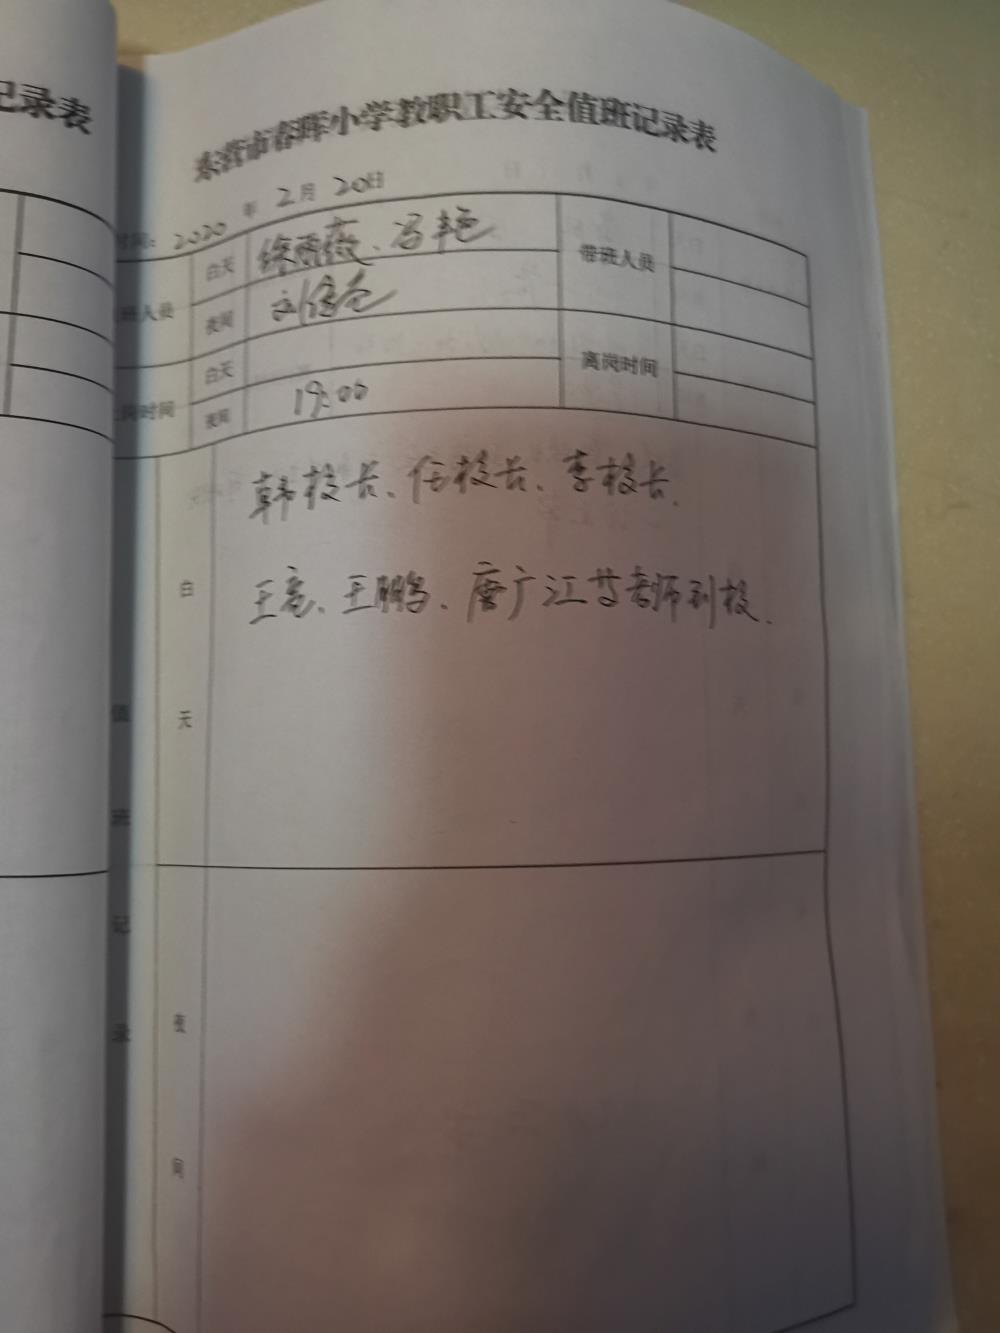 记录表
东营市春晖小学教职工安全值班记录表
时间：2020 年 2月 20日
班人员 白天 徐雨薇、冯艳 带班人员
夜间
白天 离岗时间
岗时间 夜间 19:00
韩校长、任校长、李校长、
王亮、王鹏、唐广江等老师到校、
白天
值班记录
夜间